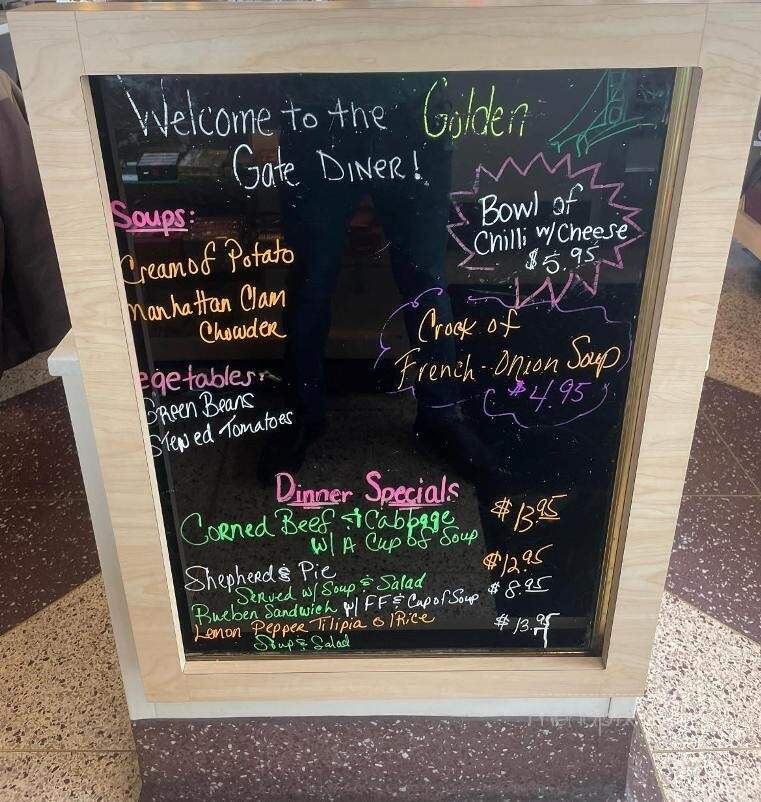 Welcome to the Golden
Gate Diner!
Bowl of
Chilli w/ Cheese
$5.95
Soups:
Cream of Potato
Manhattan Clam
Chowder
Crock of
French-Onion Soup
$4.95
egetables:
Green Beans
Stewed Tomatoes
Dinner Specials
Corned Beef & Cabbage $13.95
w/ A Cup of Soup
Shepherd's Pie $12.95
Served w/ Soup & Salad
Rueben Sandwich w/ FF & Cup of Soup $8.95
Lemon Pepper Tilipia o/ Rice $13.95
Soup & Salad